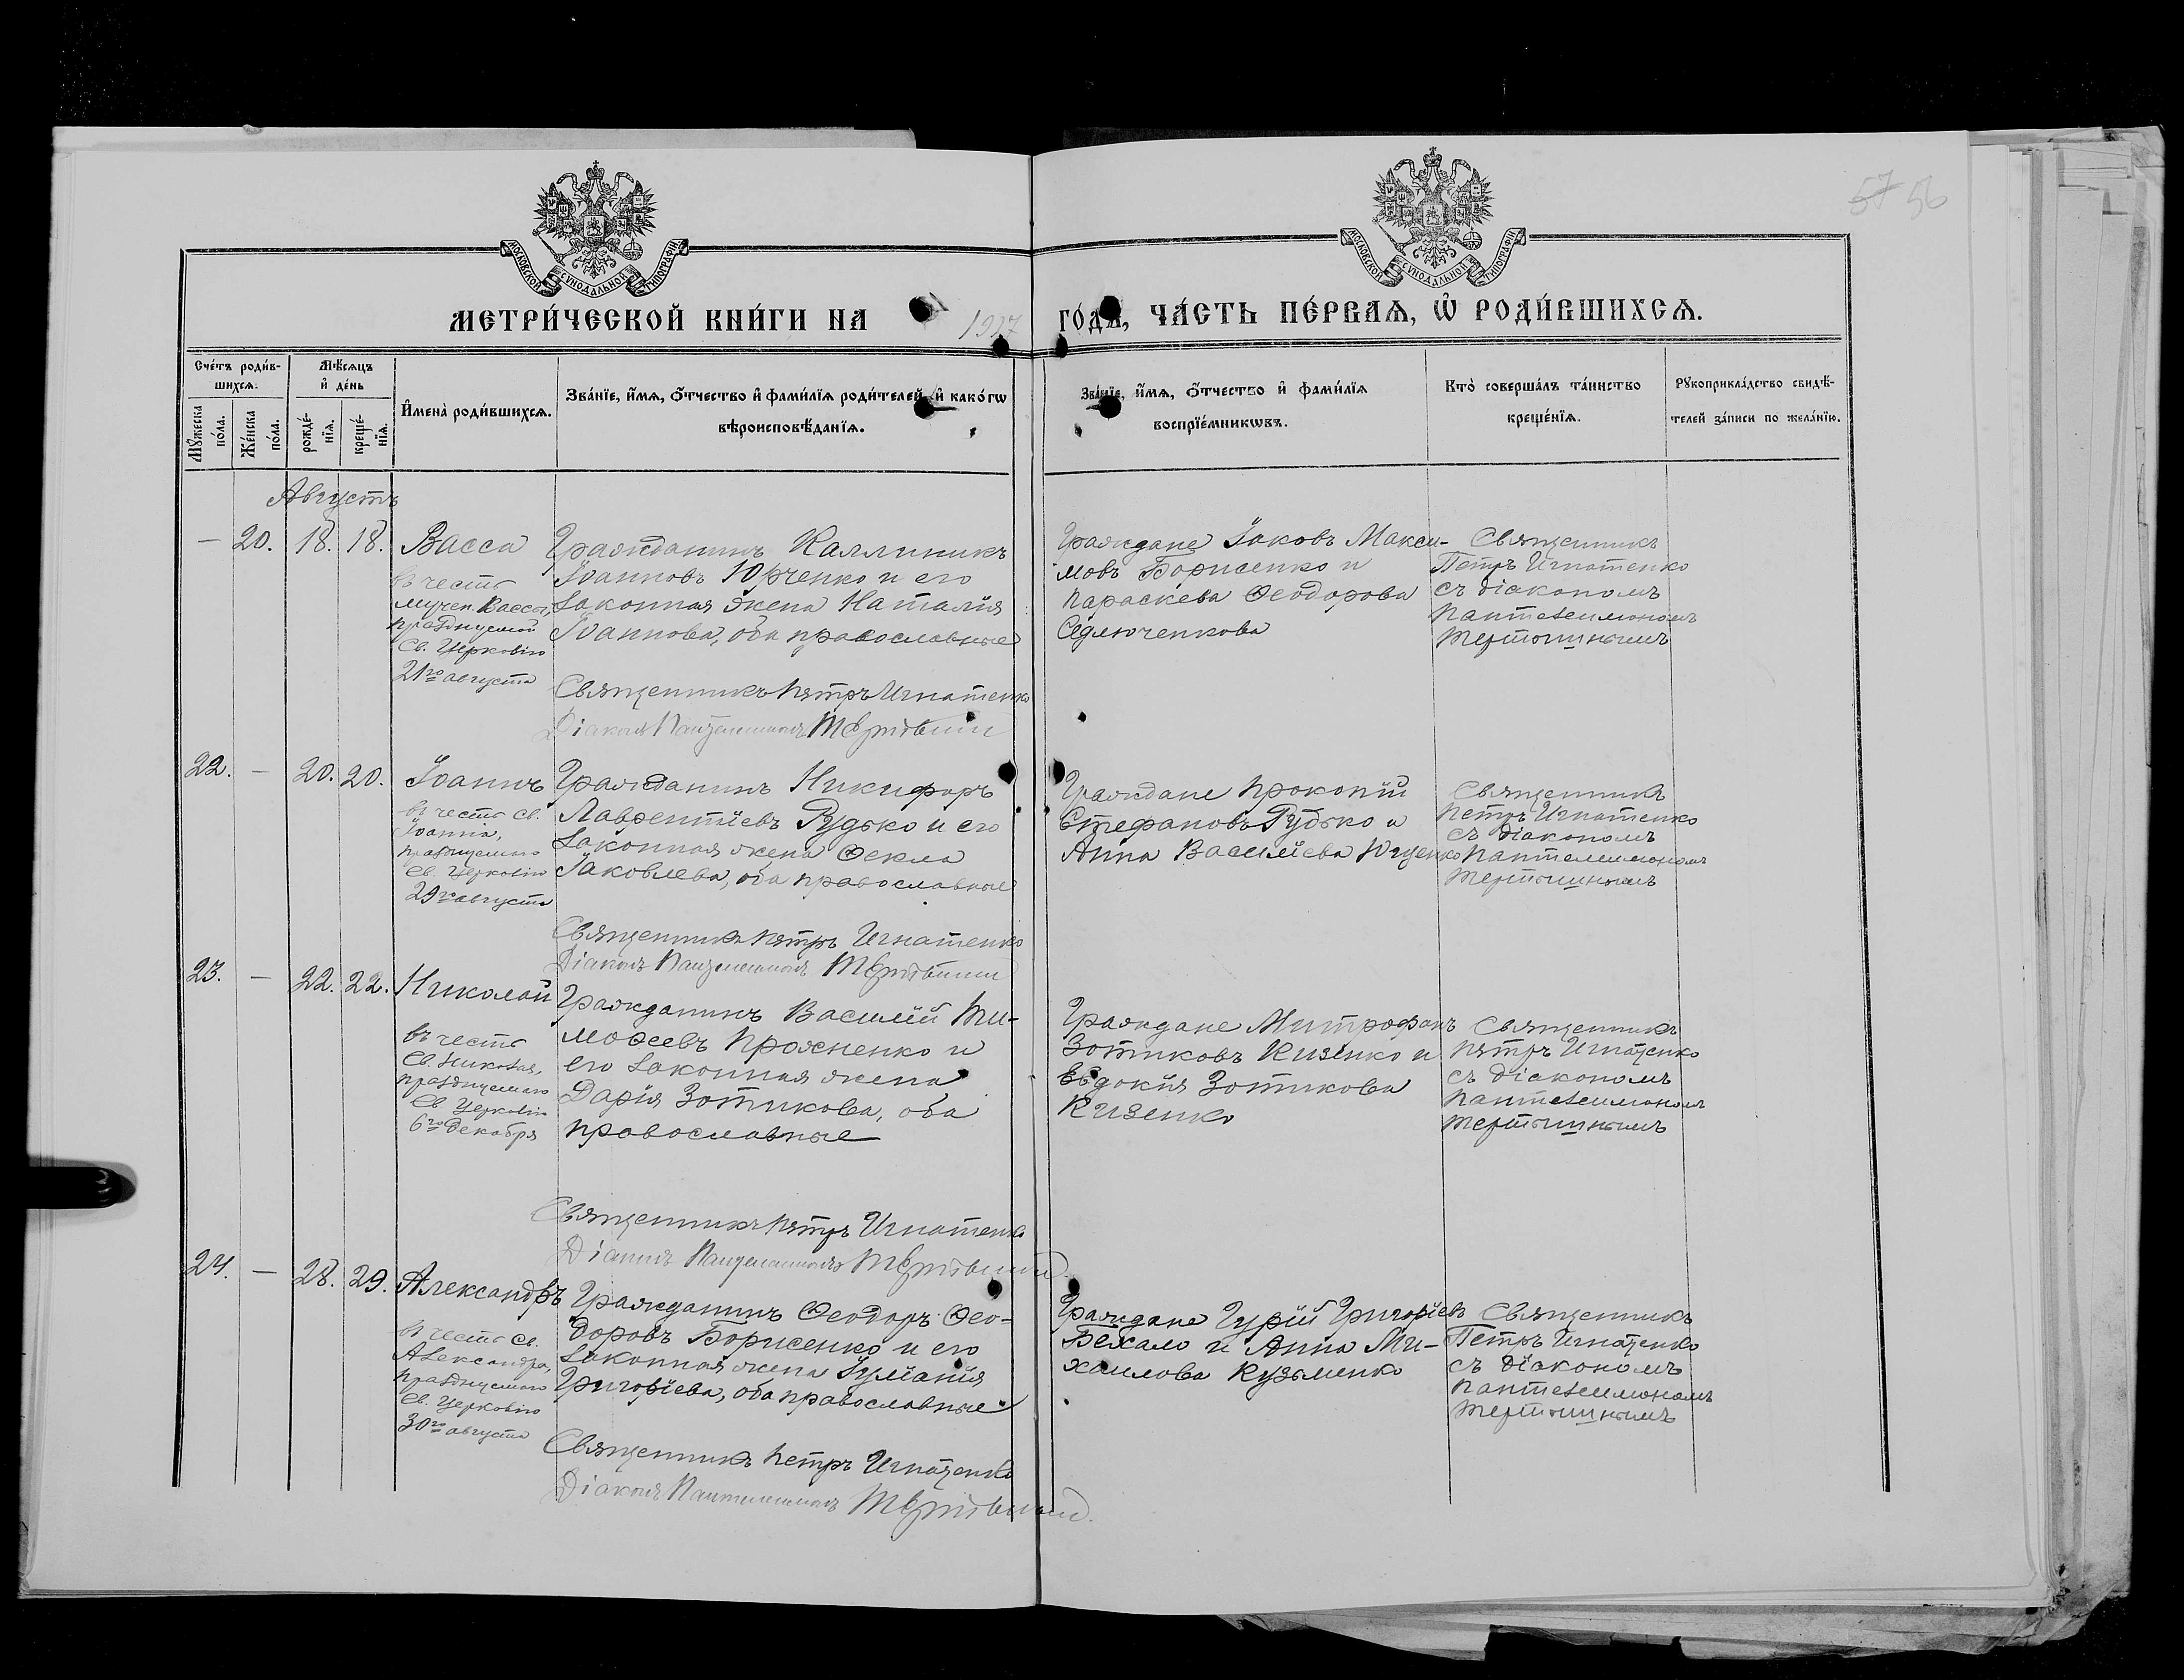 57 56
МОСКОВСКОЙ СѴНОДАЛЬНОЙ ТИПОГРАФІИ
МОСКОВСКОЙ СѴНОДАЛЬНОЙ ТИПОГРАФІИ
МЕТРИ́ЧЕСКОЙ КНИ́ГИ НА 1927 ГО́ДЪ, ЧА́СТЬ ПЕ́РВАЯ, Ѽ РОДИ́ВШИХСЯ.
Сче́тъ роди́в-
шихся.
Мѣ́сяцъ
и҆ де́нь
Мꙋ́жеска
по́ла.
Же́нска
по́ла.
рожде́-
нїя.
креще́-
нїя.
И҆мена̀ роди́вшихся.
Зва́нїе, и҆́мя, ѻ҆́тчество и҆ фами́лїя роди́телей, и҆ како́гѡ
вѣроисповѣ́данїя.
Зва́нїе, и҆́мя, ѻ҆́тчество и҆ фами́лїя
воспрїе́мникѡвъ.
Кто̀ соверша́лъ та́инство
креще́нїя.
Рꙋкоприкла́дство свидѣ́-
телей за́писи по жела́нїю.
Августъ
— 20. 18. 18. Васса
въ честь
мучен. Вассы,
празднуемой
Св. Церковію
21го августа
Гражданинъ Каллиникъ
Іоанновъ Юрченко и его
законная жена Наталія
Іоаннова, оба православные
Священникъ Петръ Игнатенко
Діаконъ Пантелеимонъ
Граждане Іаковъ Макси-
мовъ Борисенко и
Параскева Ѳеодорова
Седлюченкова
Священникъ
Петръ Игнатенко
съ діакономъ
Пантелеимономъ
22. — 20. 20. Іоаннъ
въ честь св.
Іоанна,
празднуемаго
св. Церковію
29го августа
Гражданинъ Никифоръ
Лаврентіевъ Рудько и его
законная жена Ѳекла
Іаковлева, оба православные
Священникъ Петръ Игнатенко
Діаконъ Пантелеимонъ
Граждане Прокопій
Стефановъ Рудько и
Анна Василіева Ющенко
Священникъ
Петръ Игнатенко
съ діакономъ
Пантелеимономъ
23. — 22. 22. Николай
въ честь
Св. Николая,
празднуемаго
Св. Церковію
6го декабря
Гражданинъ Василій Ти-
моѳеевъ Прохненко и
его законная жена
Дарія Зотикова, оба
православные
Священникъ Петръ Игнатенко
Діаконъ Пантелеимонъ
Граждане Митрофанъ
Зотиковъ Кизенко и
Евдокія Зотикова
Кизенко
Священникъ
Петръ Игнатенко
съ діакономъ
Пантелеимономъ
24. — 28. 29. Александръ
въ честь св.
Александра,
празднуемаго
св. Церковію
30го августа
Гражданинъ Ѳеодоръ Ѳео-
доровъ Борисенко и его
законная жена Іуліанія
Григоріева, оба православные
Священникъ Петръ Игнатенко
Діаконъ Пантелеимонъ
Граждане Гурій Григоріевъ
Вехало и Анна Ми-
хаилова Кузьменко
Священникъ
Петръ Игнатенко
съ діакономъ
Пантелеимономъ